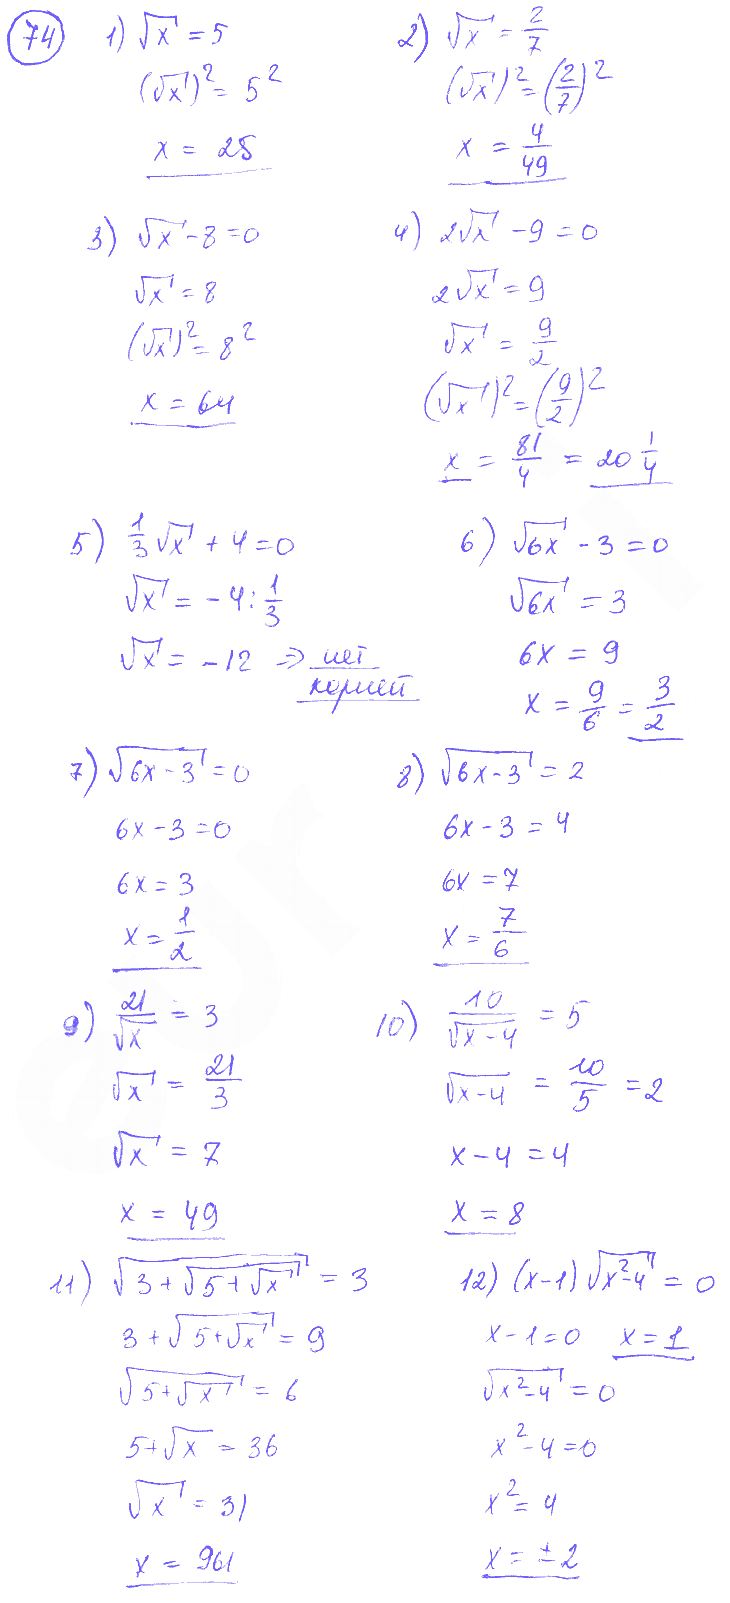 74
1) √x = 5
(√x)² = 5²
x = 25
2) √x = 2/7
(√x)² = (2/7)²
x = 4/49
3) √x - 8 = 0
√x = 8
(√x)² = 8²
x = 64
4) 2√x - 9 = 0
2√x = 9
√x = 9/2
(√x)² = (9/2)²
x = 81/4 = 20 1/4
5) 1/3 √x + 4 = 0
√x = -4 : 1/3
√x = -12 => нет
корней
6) √(6x) - 3 = 0
√(6x) = 3
6x = 9
x = 9/6 = 3/2
7) √(6x - 3) = 0
6x - 3 = 0
6x = 3
x = 1/2
8) √(6x - 3) = 2
6x - 3 = 4
6x = 7
x = 7/6
9) 21/√x = 3
√x = 21/3
√x = 7
x = 49
10) 10/√(x - 4) = 5
√(x - 4) = 10/5 = 2
x - 4 = 4
x = 8
11) √(3 + √(5 + √x)) = 3
3 + √(5 + √x) = 9
√(5 + √x) = 6
5 + √x = 36
√x = 31
x = 961
12) (x - 1) √(x² - 4) = 0
x - 1 = 0 x = 1
√(x² - 4) = 0
x² - 4 = 0
x² = 4
x = ±2